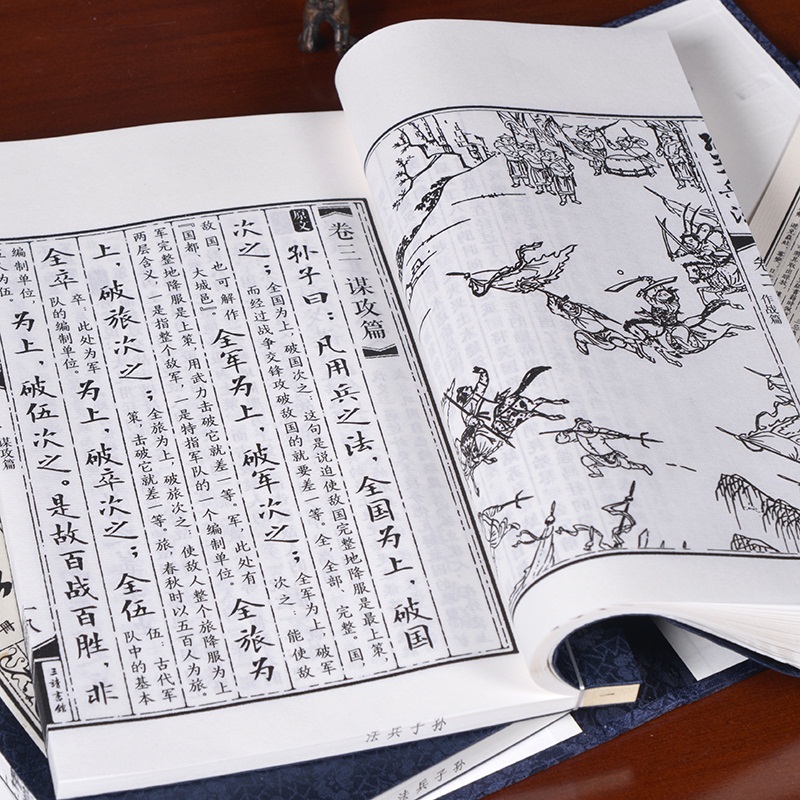 作战篇
卷三 谋攻篇
原文
孙子曰：凡用兵之法，全国为上，破国
次之；
全国为上，破国次之：这句是说迫使敌国完整地降服是最上策，
而经过战争交锋攻破敌国的就要差一等。全，全部、完整。国
敌国，也可解作
『国都、大城邑』。
全军为上，破军次之；
全军为上，破军
次之，能使敌
军完整地降服是上策，用武力击破它就差一等。军，此处有
两层含义，一是指整个敌军，一是特指军队的一个编制单位。
全旅为
上，破旅次之；
全旅为上，破旅次之：使敌人整个旅降服为上
策，击破它就差一等。旅，春秋时以五百人为旅。
全卒
卒：此处为军
队的编制单位。
为上，破卒次之；全伍
伍：古代军
队中的基本
编制单位，
五人为伍。
为上，破伍次之。是故百战百胜，非
谋攻篇
孙子兵法
孙子兵法